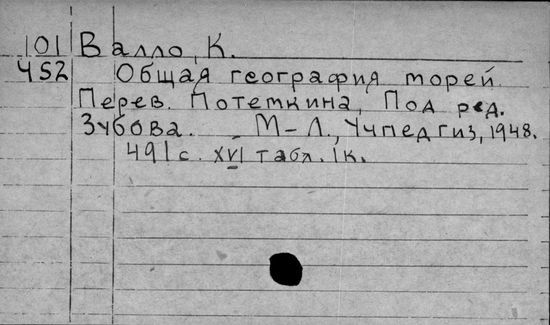 101 Валло, К.
452 Общая география морей.
Перев. Потемкина, Под ред.
Зубова. М-Л., Учпедгиз, 1948.
491 с. XVI табл. 1к.